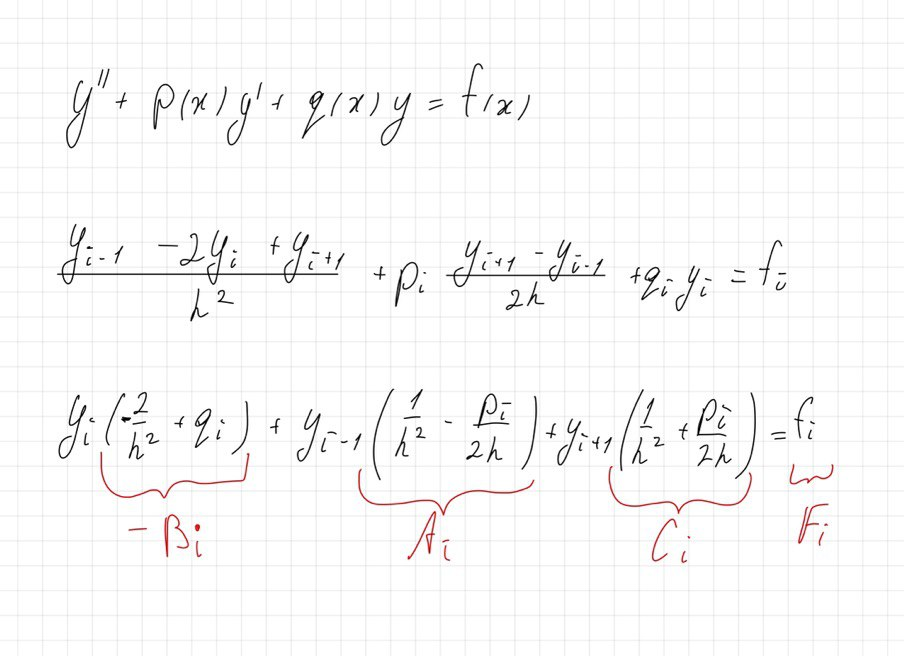 y'' + p(x)y' + q(x)y = f(x)
(y_{i-1} - 2y_i + y_{i+1})/h^2 + p_i (y_{i+1} - y_{i-1})/2h + q_i y_i = f_i
y_i(-2/h^2 + q_i) + y_{i-1}(1/h^2 - p_i/2h) + y_{i+1}(1/h^2 + p_i/2h) = f_i
-B_i A_i C_i F_i